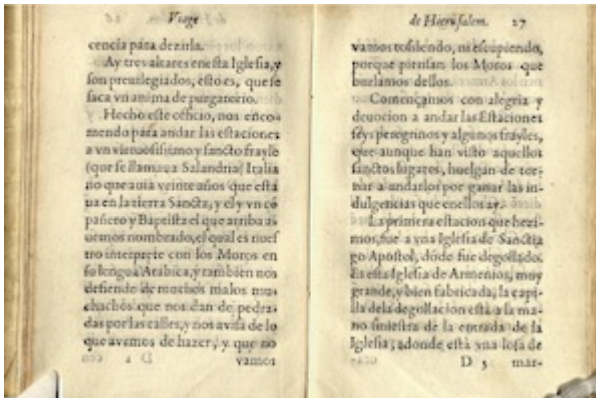 Viage
cencia para dezirla.
Ay tres altares en esta Iglesia, y
son preuilegiados, esto es, que se
saca vn anima de purgatorio.
Hecho este oficio, nos enco-
mendo para andar las estaciones
a vn virtuosissimo y sancto frayle
(que se llamaua Salandria) Italia
no que auia veinte años que està
ua en la tierra Sancta, y el y vn cõ
pañero y Baptista el que arriba a-
uemos nombrado, el qual es nues
tro interprete con los Moros en
su lengua Arabica, y tambien nos
defiende de muchos malos mu-
chachos que nos dan de pedra-
das por las calles, y nos auisa de lo
que auemos de hazer, y que no
D 2 vamos
de Hierusalem. 27
vamos tosiendo, ni escupiendo,
porque piensan los Moros que
burlamos dellos.
Començamos con alegria y
deuocion a andar las Estaciones
seys peregrinos y algunos frayles,
que aunque han visto aquellos
sanctos lugares, huelgan de tor-
nar a andarlos por ganar las in-
dulgencias que en ellos ay.
La primera estacion que hezi-
mos, fue a vna Iglesia de Sanctia
go Apostol, dõde fue degollado.
Es esta Iglesia de Armenios, muy
grande, y bien fabricada, la capi-
lla dela degollacion està a la ma-
no siniestra de la entrada de la
Iglesia, adonde està vna losa de
D 3 mar-